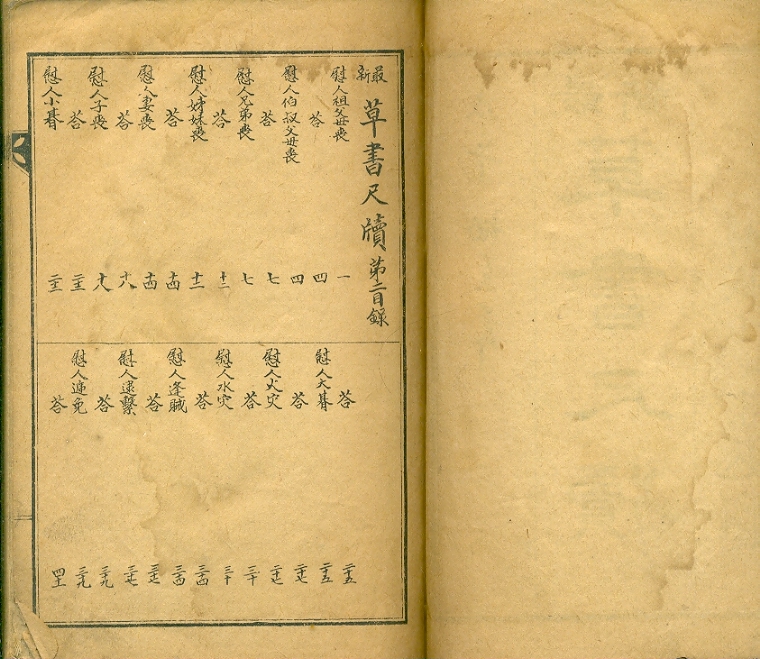 最新草書尺牘第二目錄
慰人祖父母喪 一
答 四
慰人伯叔父母喪 四
答 七
慰人兄弟喪 七
答 十二
慰人姊妹喪 十二
答 十四
慰人妻喪 十四
答 十八
慰人子喪 十八
答
慰人小朞
答 二十五
慰人大朞 二十五
答 二十七
慰人火灾 二十七
答 三十
慰人水灾 三十
答 三十四
慰人逢賊 三十四
答 三十七
慰人逮繫 三十七
答 三十九
慰人遞免 三十九
答 四十一